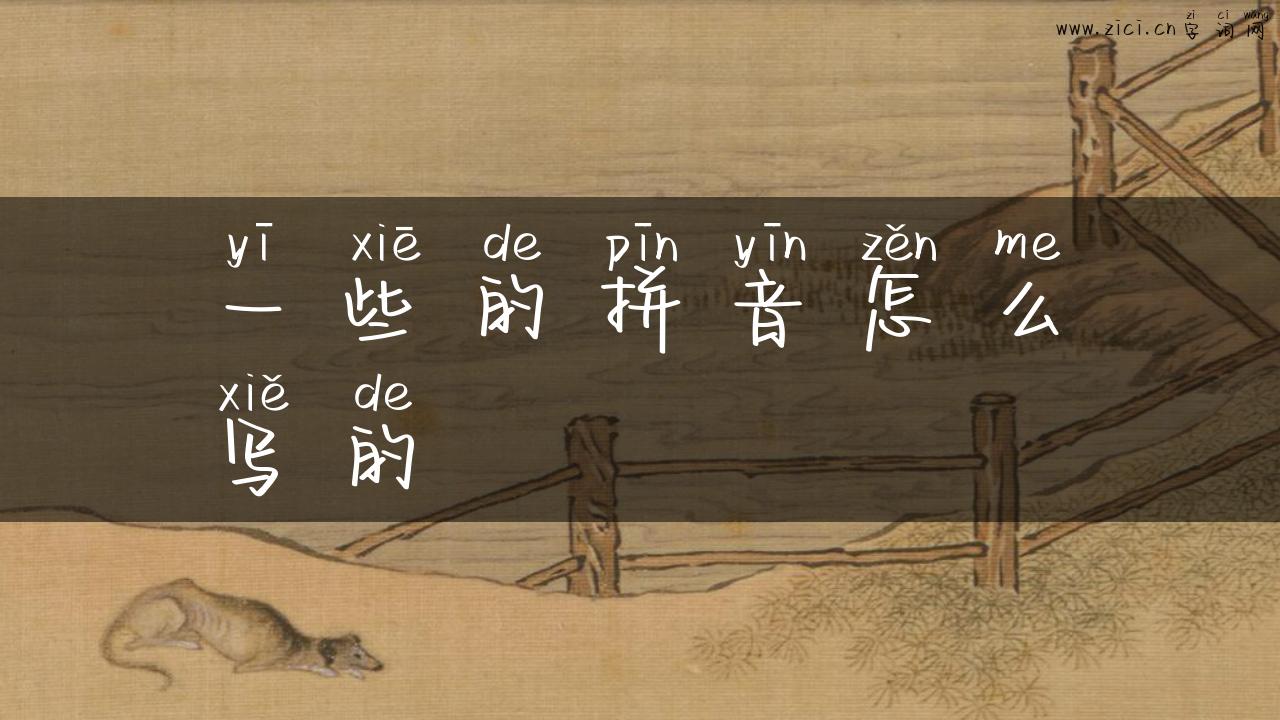 zi ci wang
www.zici.cn 字词网
yī xiē de pīn yīn zěn me
一些的拼音怎么
xiě de
写的